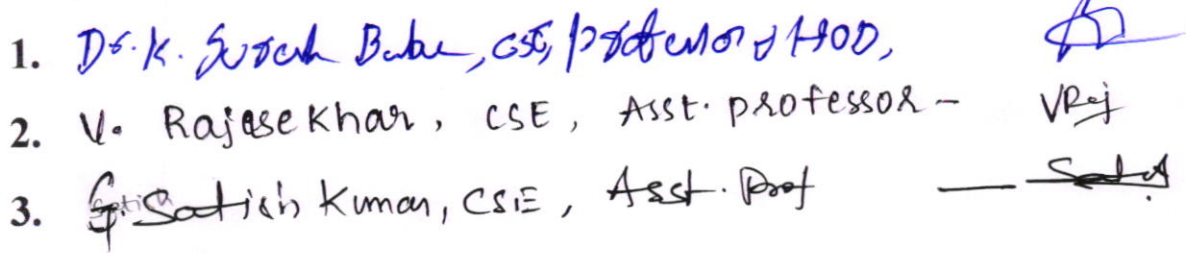 1. Dr. K. Suresh Babu, CSE, Professor & HOD,
2. V. Rajasekhar, CSE, Asst. professor - VRaj
3. G. Satish Kumar, CSE, Asst. Prof —